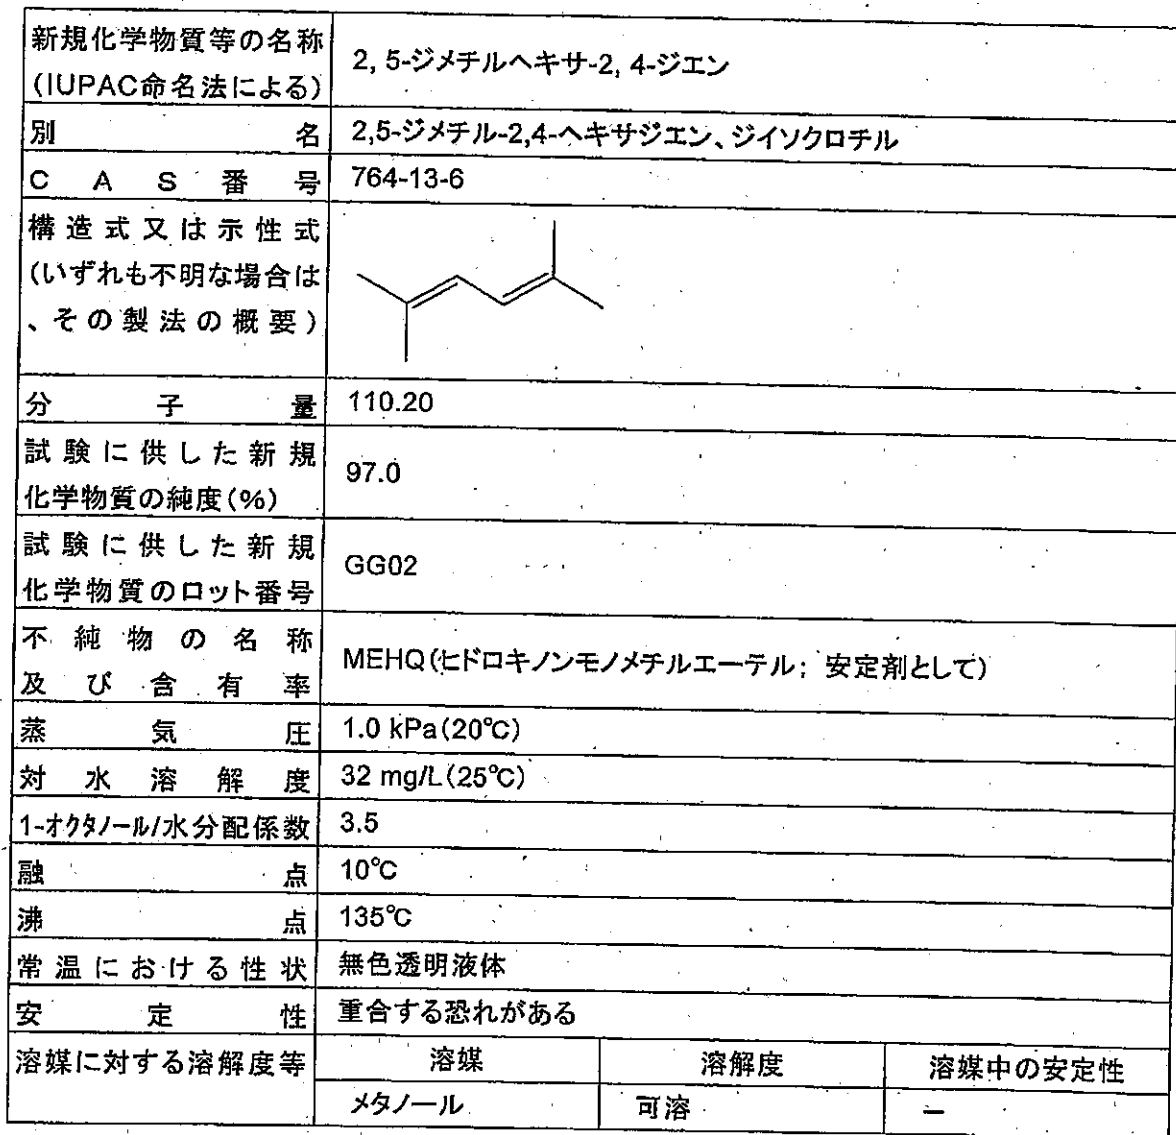 新規化学物質等の名称
(IUPAC命名法による)
2, 5-ジメチルヘキサ-2, 4-ジエン
別名
2,5-ジメチル-2,4-ヘキサジエン、ジイソクロチル
CAS番号
764-13-6
構造式又は示性式
(いずれも不明な場合は
、その製法の概要)
分子量
110.20
試験に供した新規
化学物質の純度(%)
97.0
試験に供した新規
化学物質のロット番号
GG02
不純物の名称
及び含有率
MEHQ(ヒドロキノンモノメチルエーテル; 安定剤として)
蒸気圧
1.0 kPa(20℃)
対水溶解度
32 mg/L(25℃)
1-オクタノール/水分配係数
3.5
融点
10℃
沸点
135℃
常温における性状
無色透明液体
安定性
重合する恐れがある
溶媒に対する溶解度等
溶媒
溶解度
溶媒中の安定性
メタノール
可溶
－